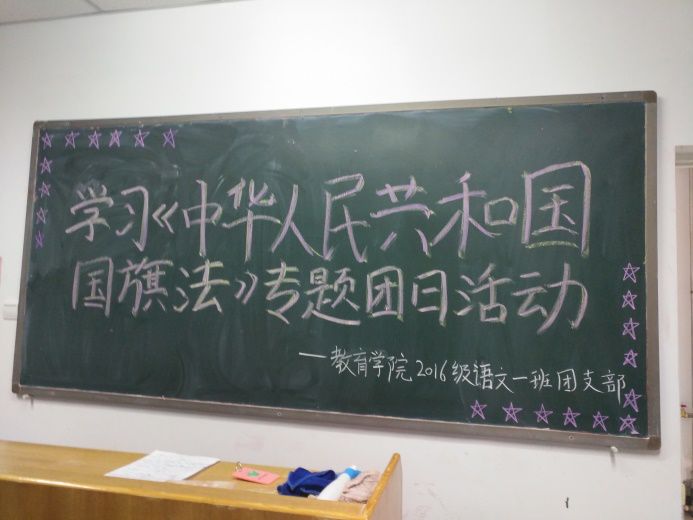 学习《中华人民共和国
国旗法》专题团日活动
—教育学院2016级语文一班团支部